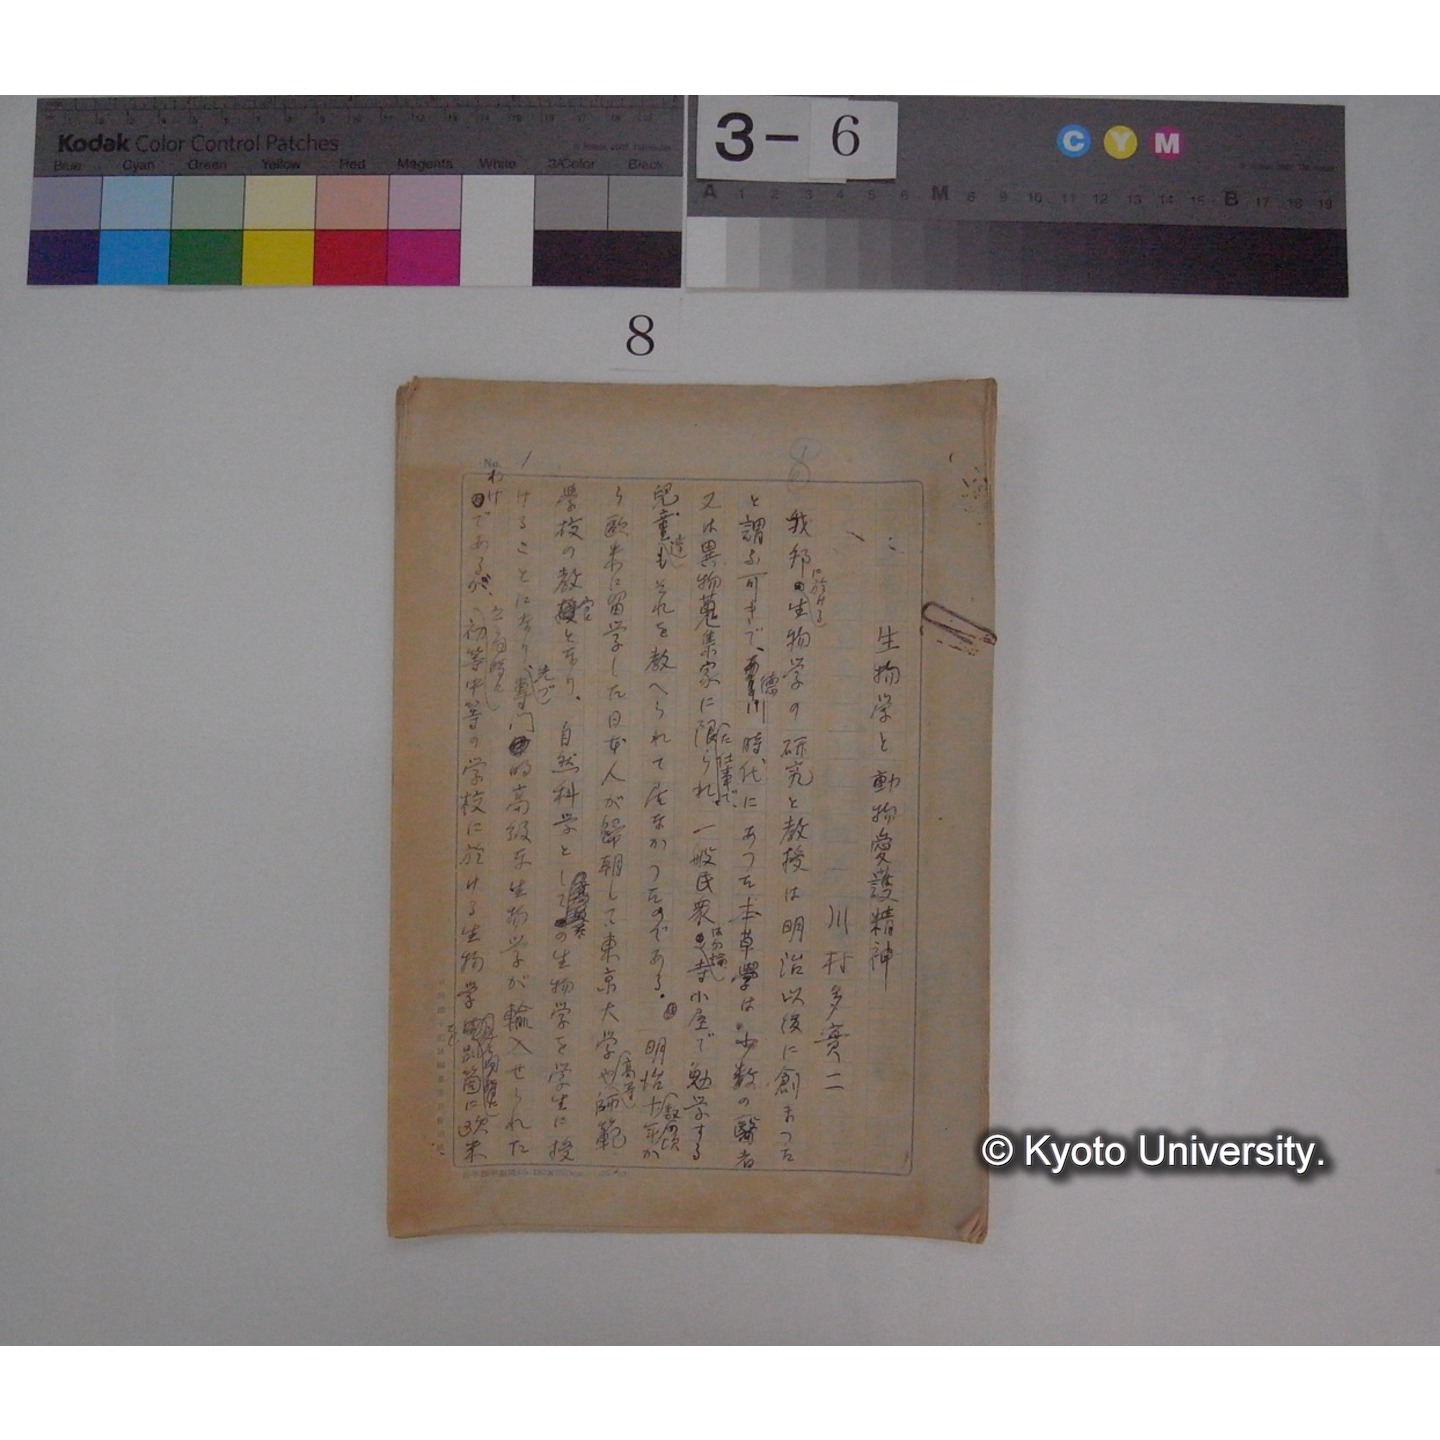 Kodak Color Control Patches
Blue Cyan Green Yellow Red Magenta White 3/Color Black
3-6
C Y M
A 1 2 3 4 5 6 M 8 9 10 11 12 13 14 15 B 17 18 19
8
8
No. 1
生物学と動物愛護精神
川村多實二
我邦に於ける生物学の研究と教授は明治以後に創まつた
と謂ふ可きで、徳川時代にあつた本草學は少数の醫者
又は異物蒐集家に限られた仕事で、一般民衆は勿論寺小屋で勉学する
兒童達もそれを教へられて居なかつたのである。明治十年頃か
ら欧米に留学した日本人が歸朝して東京大学や高等師範
學校の教官となり、自然科学としての生物学を学生に授
けることになり、先づ専門的高級な生物学が輸入せられた
わけであるが、初等中等の学校に於ける生物学
© Kyoto University.